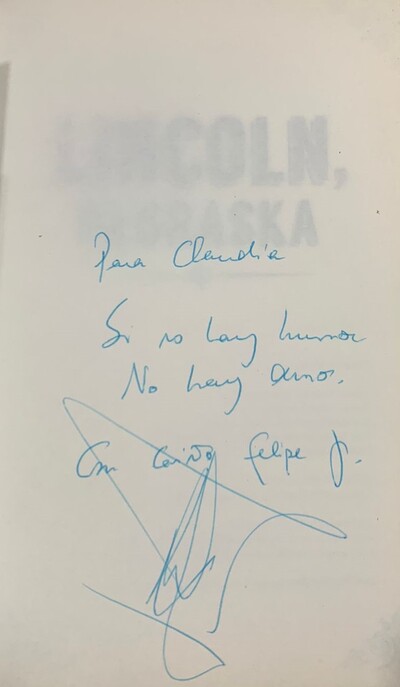 LINCOLN,
NEBRASKA
Para Claudia
Si no hay humor
No hay amor.
Con cariño Felipe J.